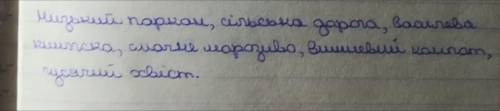 Низький паркан, сільська дорога, василева
книжка, смачне морозиво, вишневий компот,
гусячий хвіст.